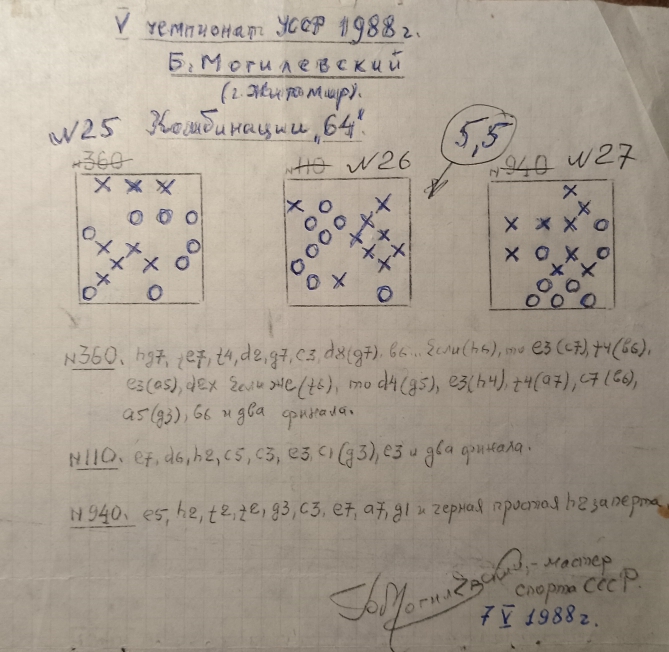 V чемпионат УССР 1988 г.
Б. Могилевский
(г. Житомир).
N25 Комбинации „64“.
5,5
N360
N110 N26
N940 N27
N360. hg7, fe7, f4, d2, g7, c3, d8(g7). b6... Если(h6), то e3(c7), f4(b6),
e3(a5), dex Если же(f6), то d4(g5), e3(h4), f4(a7), c7(b6),
a5(g3), b6 и два финала.
N110. e7, d6, h2, c5, c3, e3, c1(g3), e3 и два финала.
N940. e5, h2, f2, f2, g3, c3, e7, a7, g1 и черная простая h2 заперта
Б. Могилевский, - мастер
спорта СССР.
7 V 1988 г.